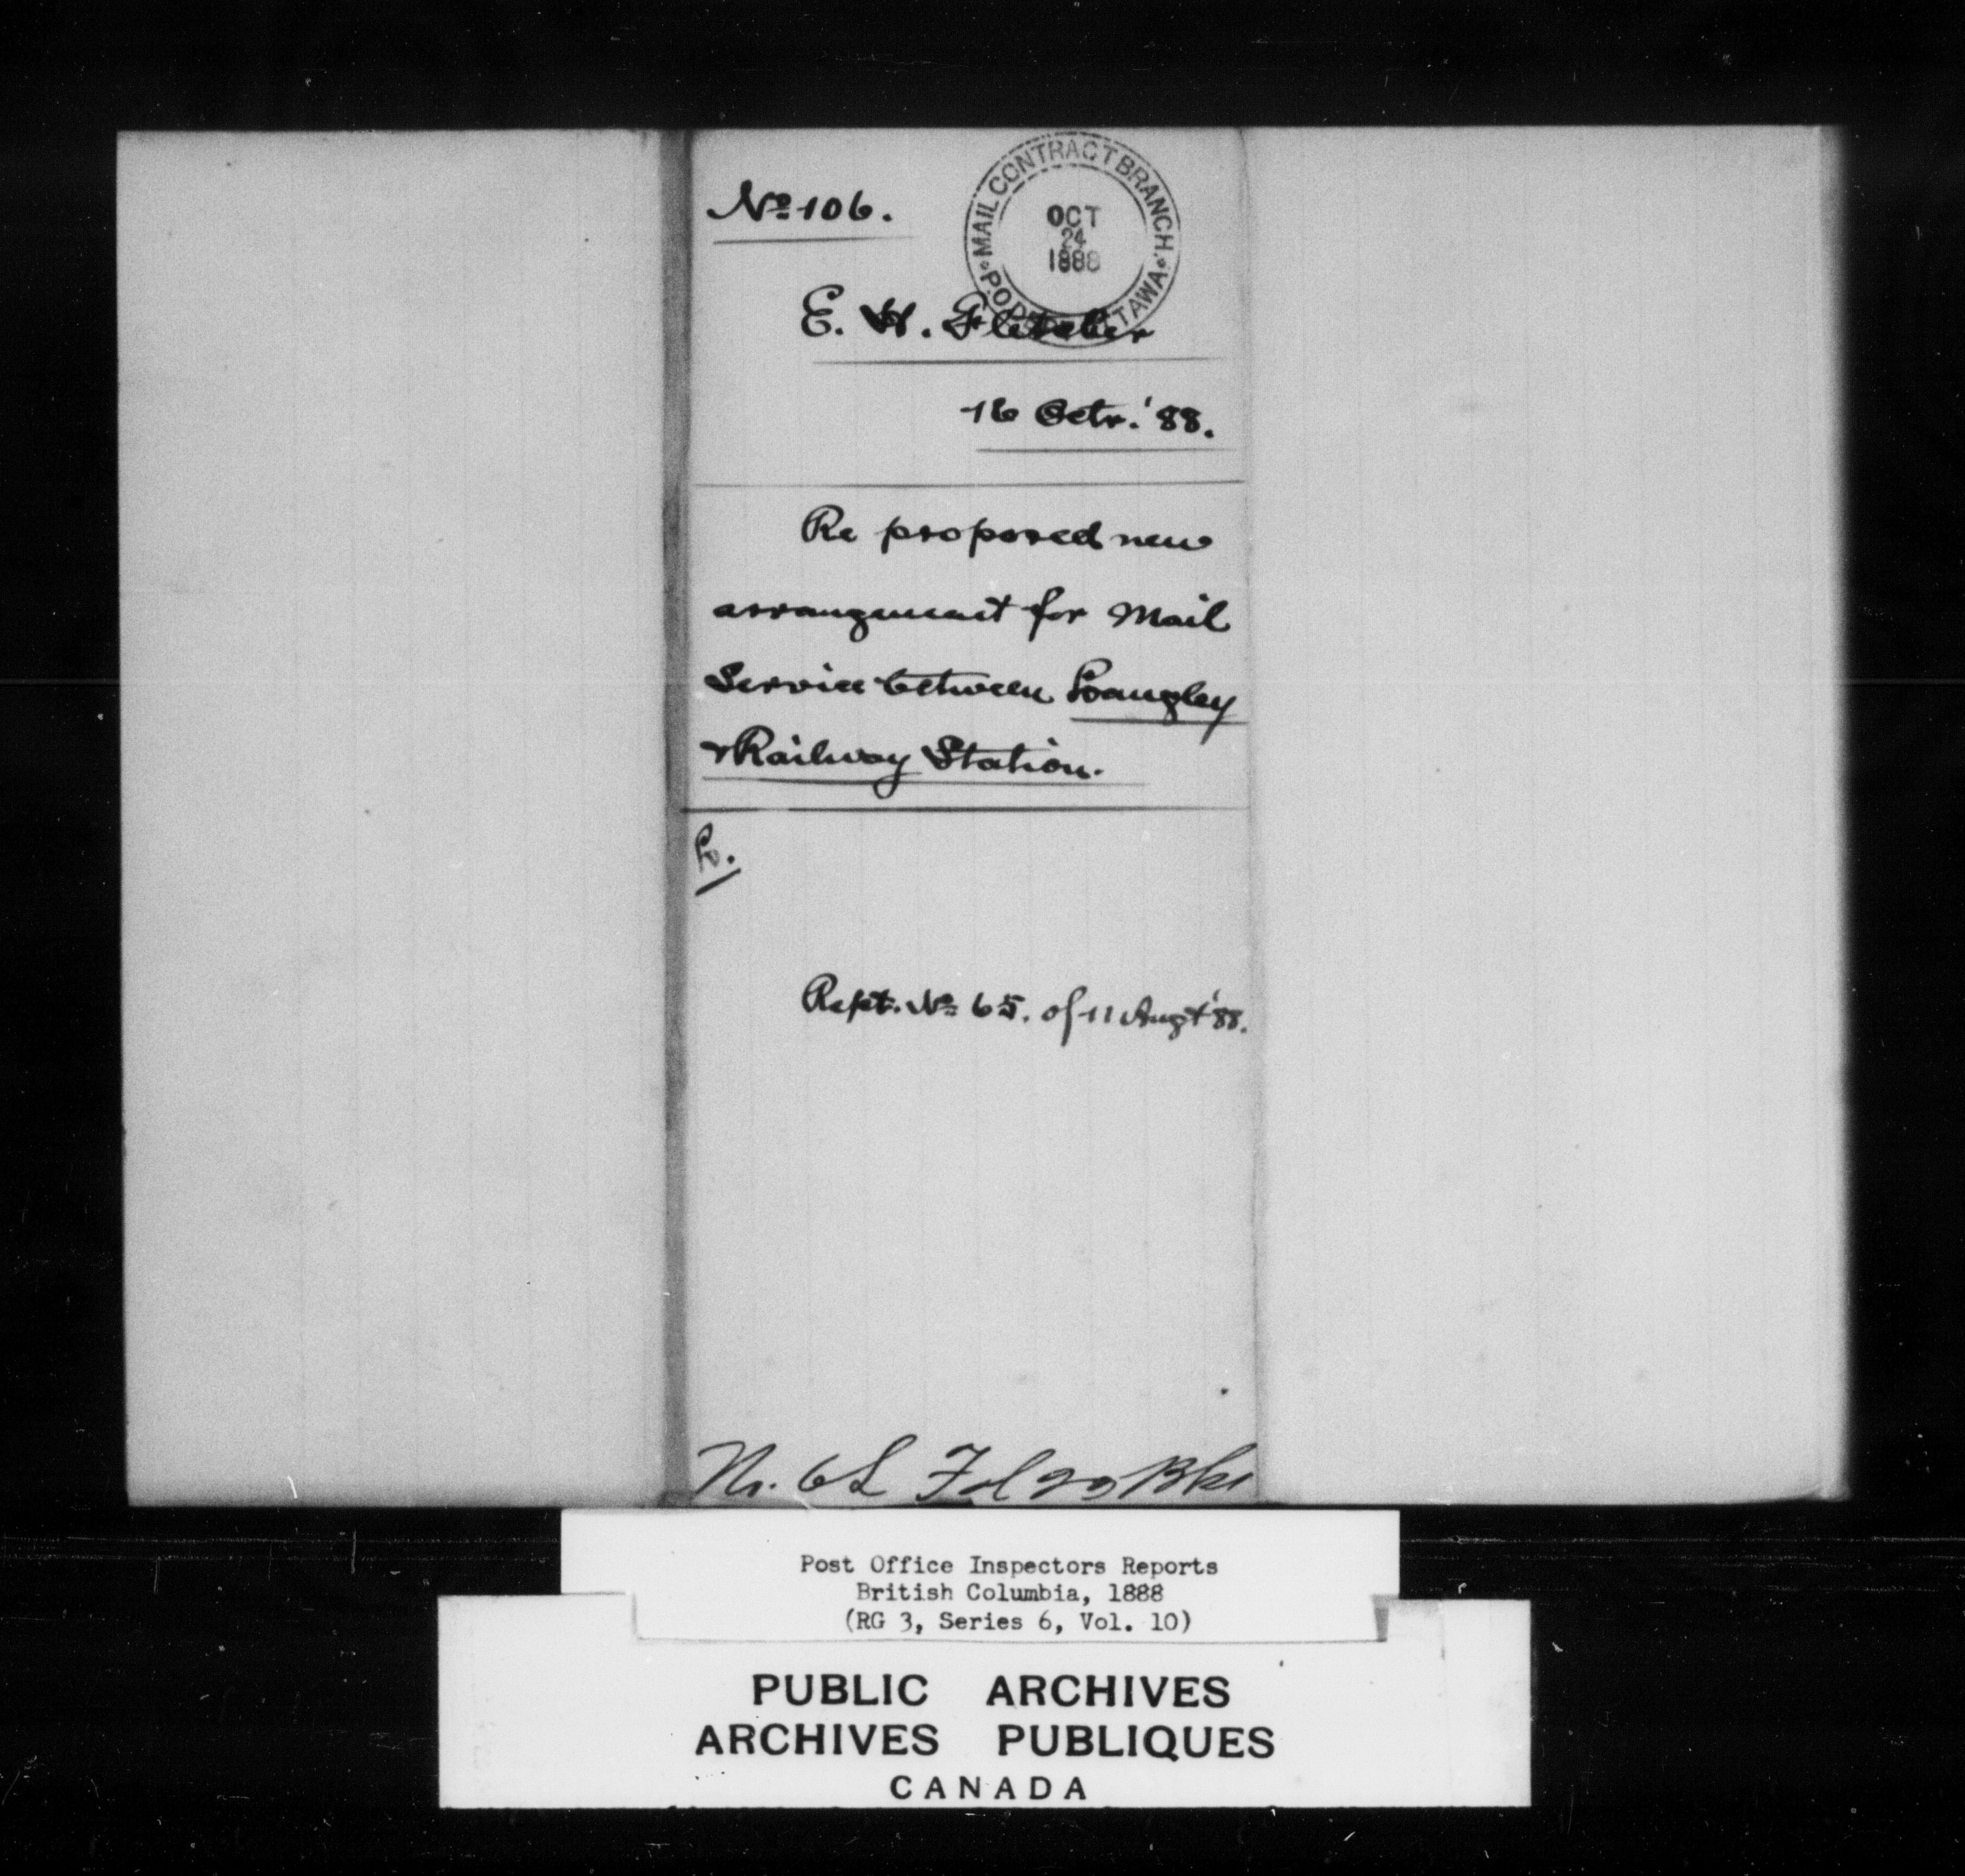 No 106.
MAIL CONTRACT BRANCH
OCT
24
1888
E. H. Fletcher
16 Octr. '88.
Re proposed new
arrangement for Mail
Service between Langley
& Railway Station.
L.
Rept. No 65. of 11 Augt '88.
Post Office Inspectors Reports
British Columbia, 1888
(RG 3, Series 6, Vol. 10)
PUBLIC ARCHIVES
ARCHIVES PUBLIQUES
CANADA